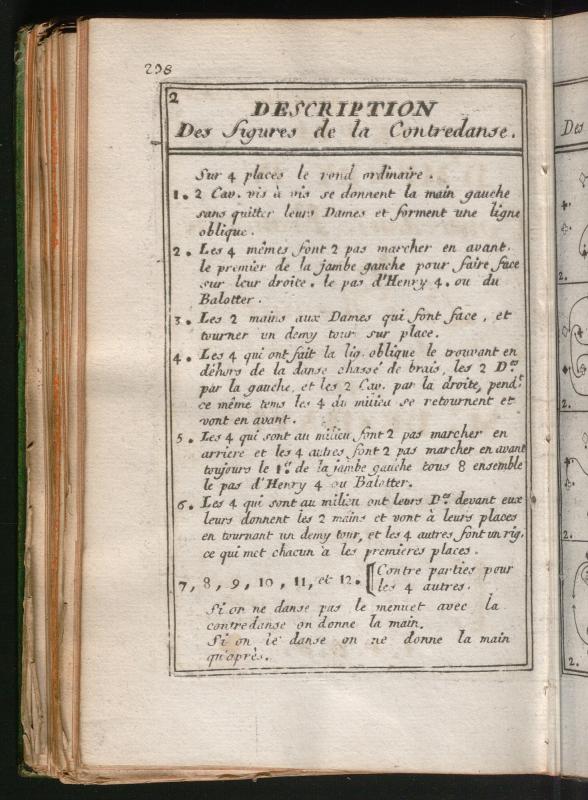 238
2
DESCRIPTION
Des figures de la Contredanse.
Sur 4 places le rond ordinaire.
1. 2 Cav. vis à vis se donnent la main gauche
sans quitter leurs Dames et forment une ligne
oblique.
2. Les 4 mêmes font 2 pas marcher en avant.
le premier de la jambe gauche pour faire face
sur leur droite. le pas d'Henry 4. ou du
Balotter.
3. Les 2 mains aux Dames qui font face, et
tourner un demy tour sur place.
4. Les 4 qui ont fait la lig. oblique le trouvant en
déhors de la danse chassé de brais, les 2 D.es
par la gauche, et les 2 Cav. par la droite, pend.t
ce même tems les 4 du milieu se retournent et
vont en avant.
5. Les 4 qui sont au milieu font 2 pas marcher en
arriere et les 4 autres font 2 pas marcher en avant
toujours le 1.er de la jambe gauche tous 8 ensemble
le pas d'Henry 4 ou Balotter.
6. Les 4 qui sont au milieu ont leurs D.es devant eux
leurs donnent les 2 mains et vont à leurs places
en tournant un demy tour, et les 4 autres font un rig.
ce qui met chacun a les premieres places.
7, 8, 9, 10, 11, et 12. [Contre parties pour
les 4 autres.
Si on ne danse pas le menuet avec la
contredanse on donne la main.
Si on le danse on ne donne la main
qu'après.
Des
4.
2.
2.
2.